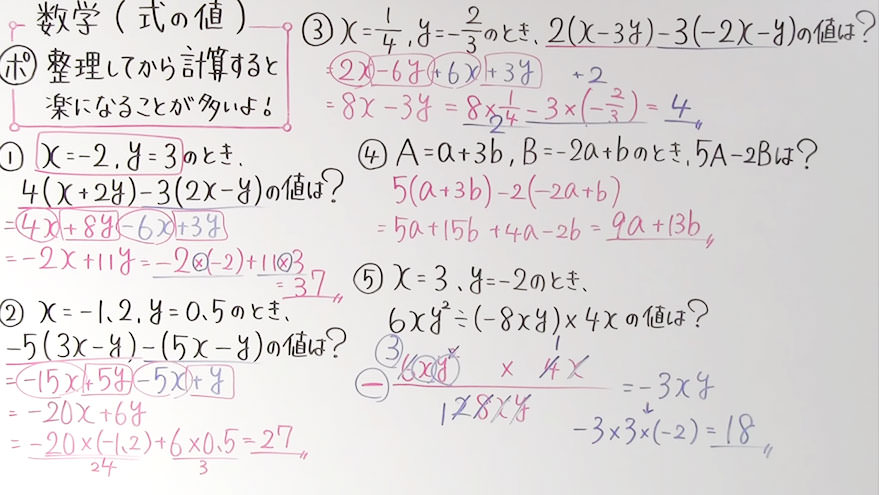 数学(式の値)
ポ 整理してから計算すると
楽になることが多いよ!
① x=-2, y=3のとき、
4(x+2y)-3(2x-y)の値は?
=4x+8y-6x+3y
=-2x+11y=-2×(-2)+11×3
=37
② x=-1.2, y=0.5のとき、
-5(3x-y)-(5x-y)の値は?
=-15x+5y-5x+y
=-20x+6y
=-20×(-1.2)+6×0.5=27
24 3
③ x=1/4, y=-2/3のとき、2(x-3y)-3(-2x-y)の値は?
=2x-6y+6x+3y +2
=8x-3y=8×1/4-3×(-2/3)=4
2
④ A=a+3b, B=-2a+bのとき、5A-2Bは?
5(a+3b)-2(-2a+b)
=5a+15b+4a-2b=9a+13b
⑤ x=3、y=-2のとき、
6xy²÷(-8xy)×4xの値は?
3 1
- 6xy² × 4x / 1 2 8xy =-3xy
-3×3×(-2)=18